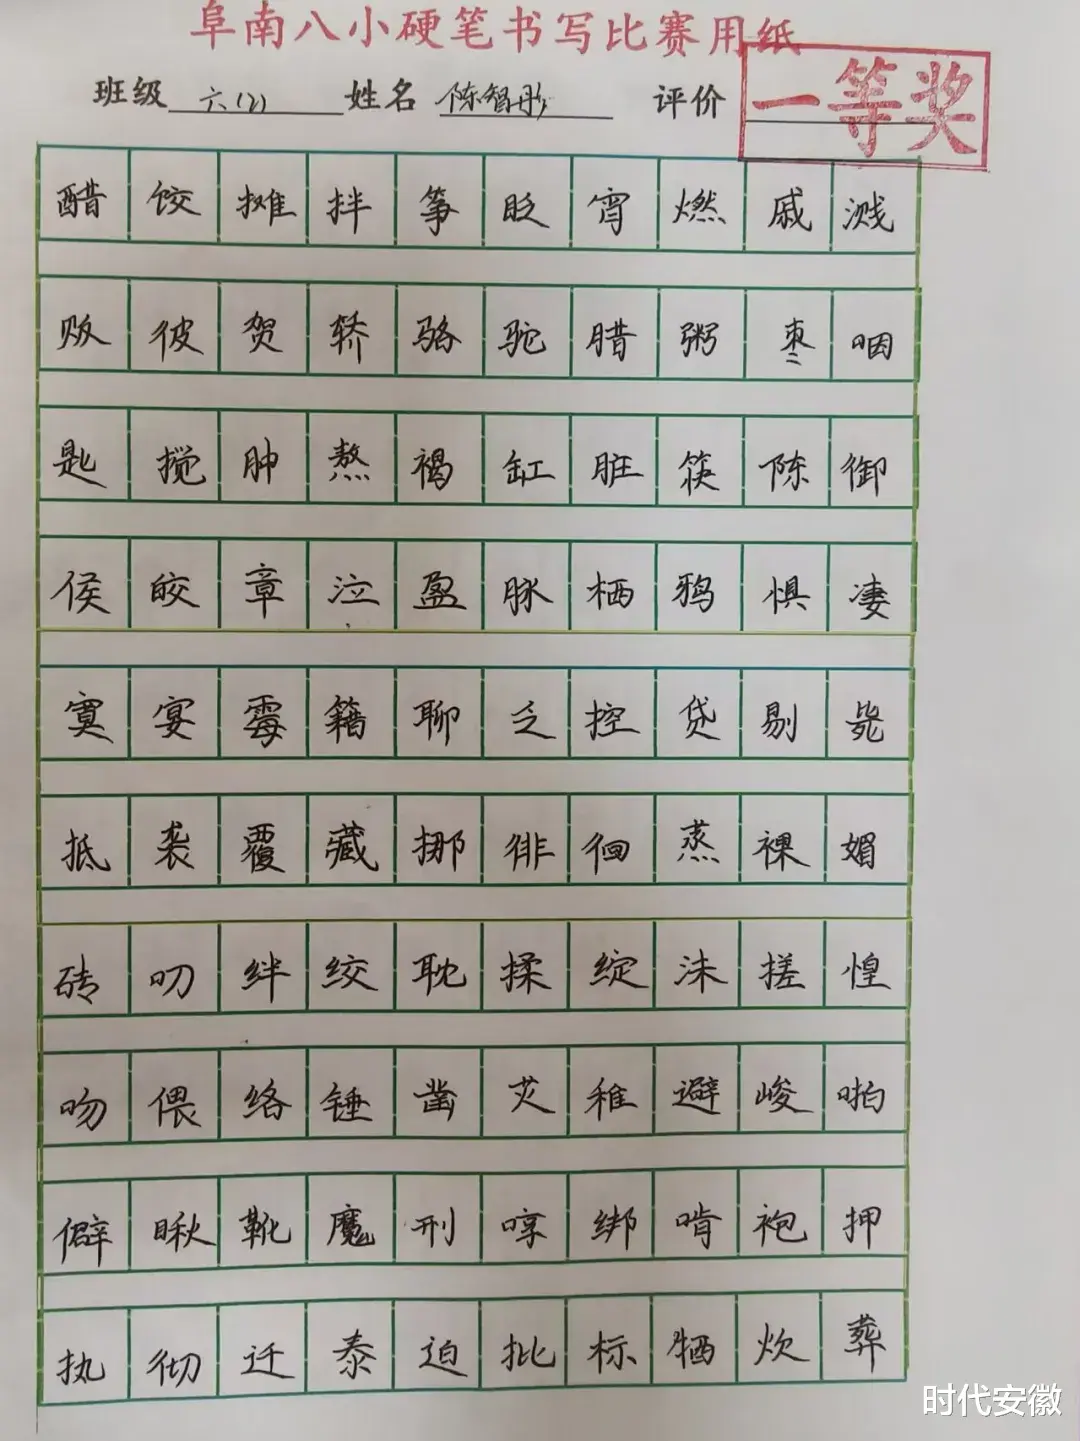 阜南八小硬笔书写比赛用纸
班级 六(2) 姓名 陈智彤 评价 一等奖
醋饺摊拌筝眨宵燃戚溅
贩彼贺轿骆驼腊粥枣咽
匙搅肿熬褐缸脏筷陈御
侯皎章泣盈脉栖鸦惧凄
寞宴霉籍聊乏控贷剔毙
抵袭覆藏挪徘徊蒸裸媚
砖叨绊绞耽揉绽沫搓惶
吻偎络锤凿灾稚避峻啪
僻瞅靴魔刑哼绑啃袍押
执彻迁泰迫批标牺炊葬
时代安徽